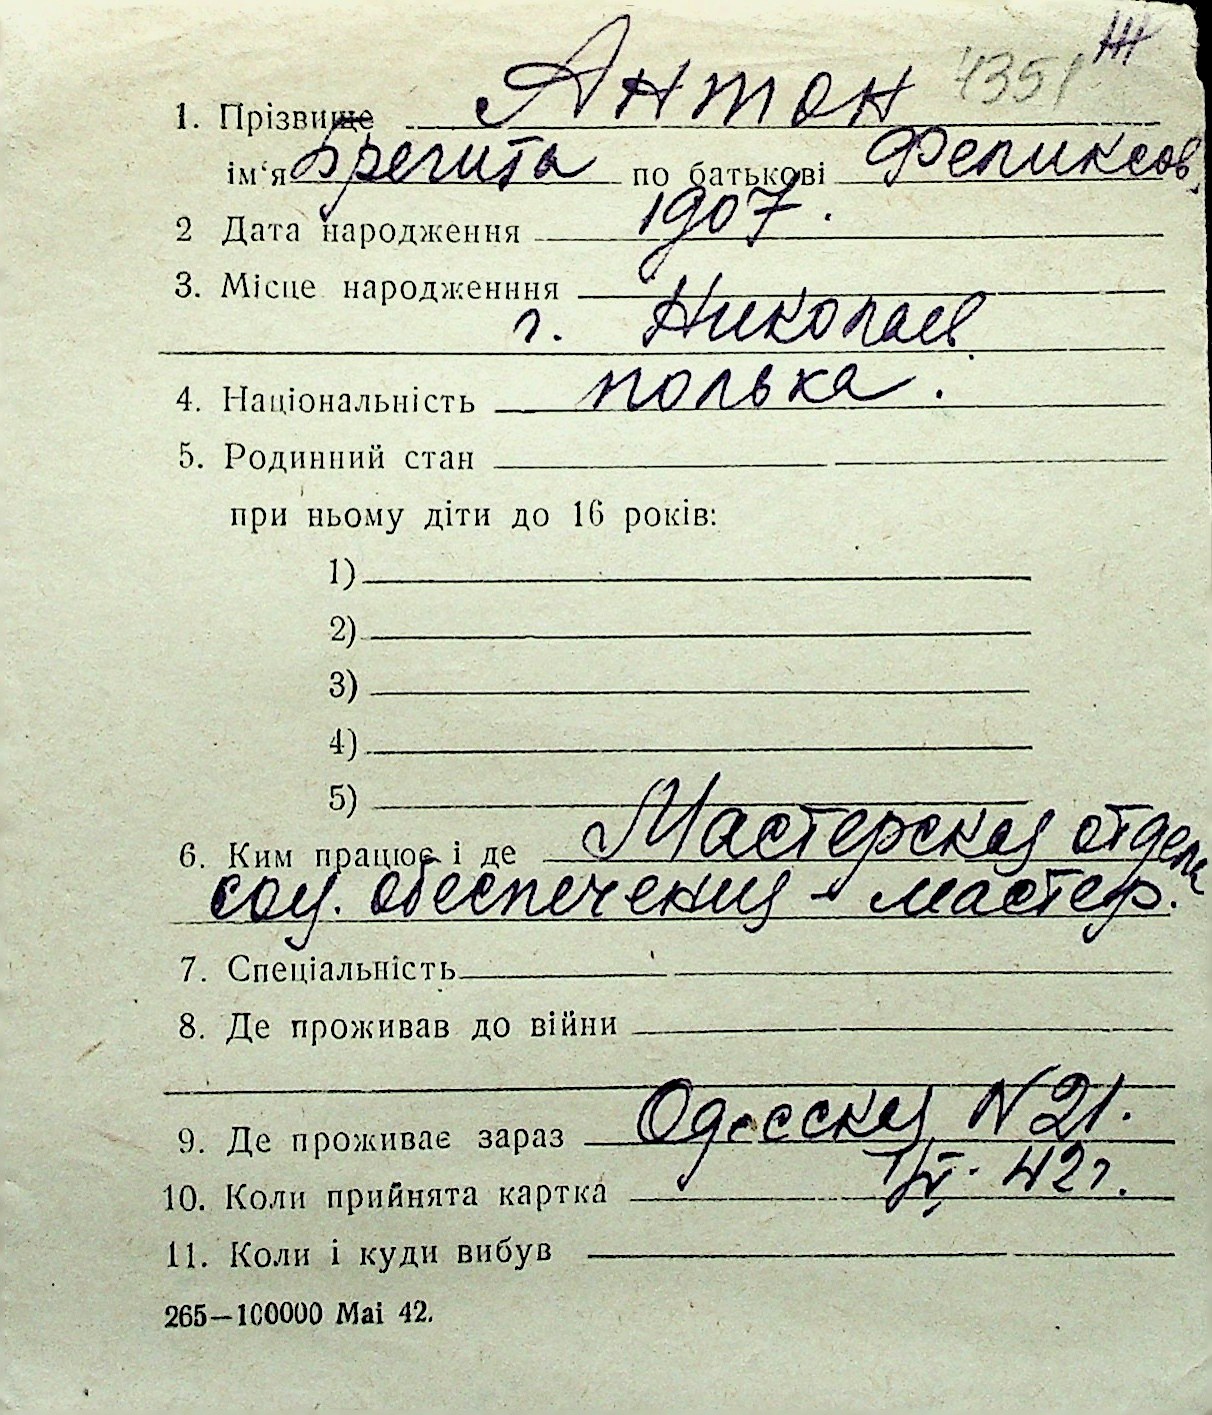 4351 Ж
1. Прізвище Антон
ім'я Бречита по батькові Феликсов.
2 Дата народження 1907.
3. Місце народженння
г. Николаев
4. Національність полька.
5. Родинний стан
при ньому діти до 16 років:
1)
2)
3)
4)
5)
6. Ким працює і де Мастерская отдела
соц. обеспечения - мастер.
7. Спеціальність
8. Де проживав до війни
9. Де проживає зараз Одесская N 21.
10. Коли прийнята картка 42 г.
11. Коли і куди вибув
265—100000 Маі 42.